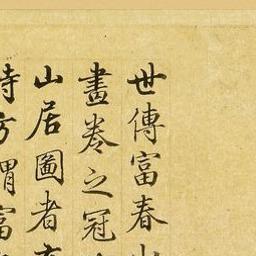 世傳富春山
畫卷之冠
山居圖者
時方謂富